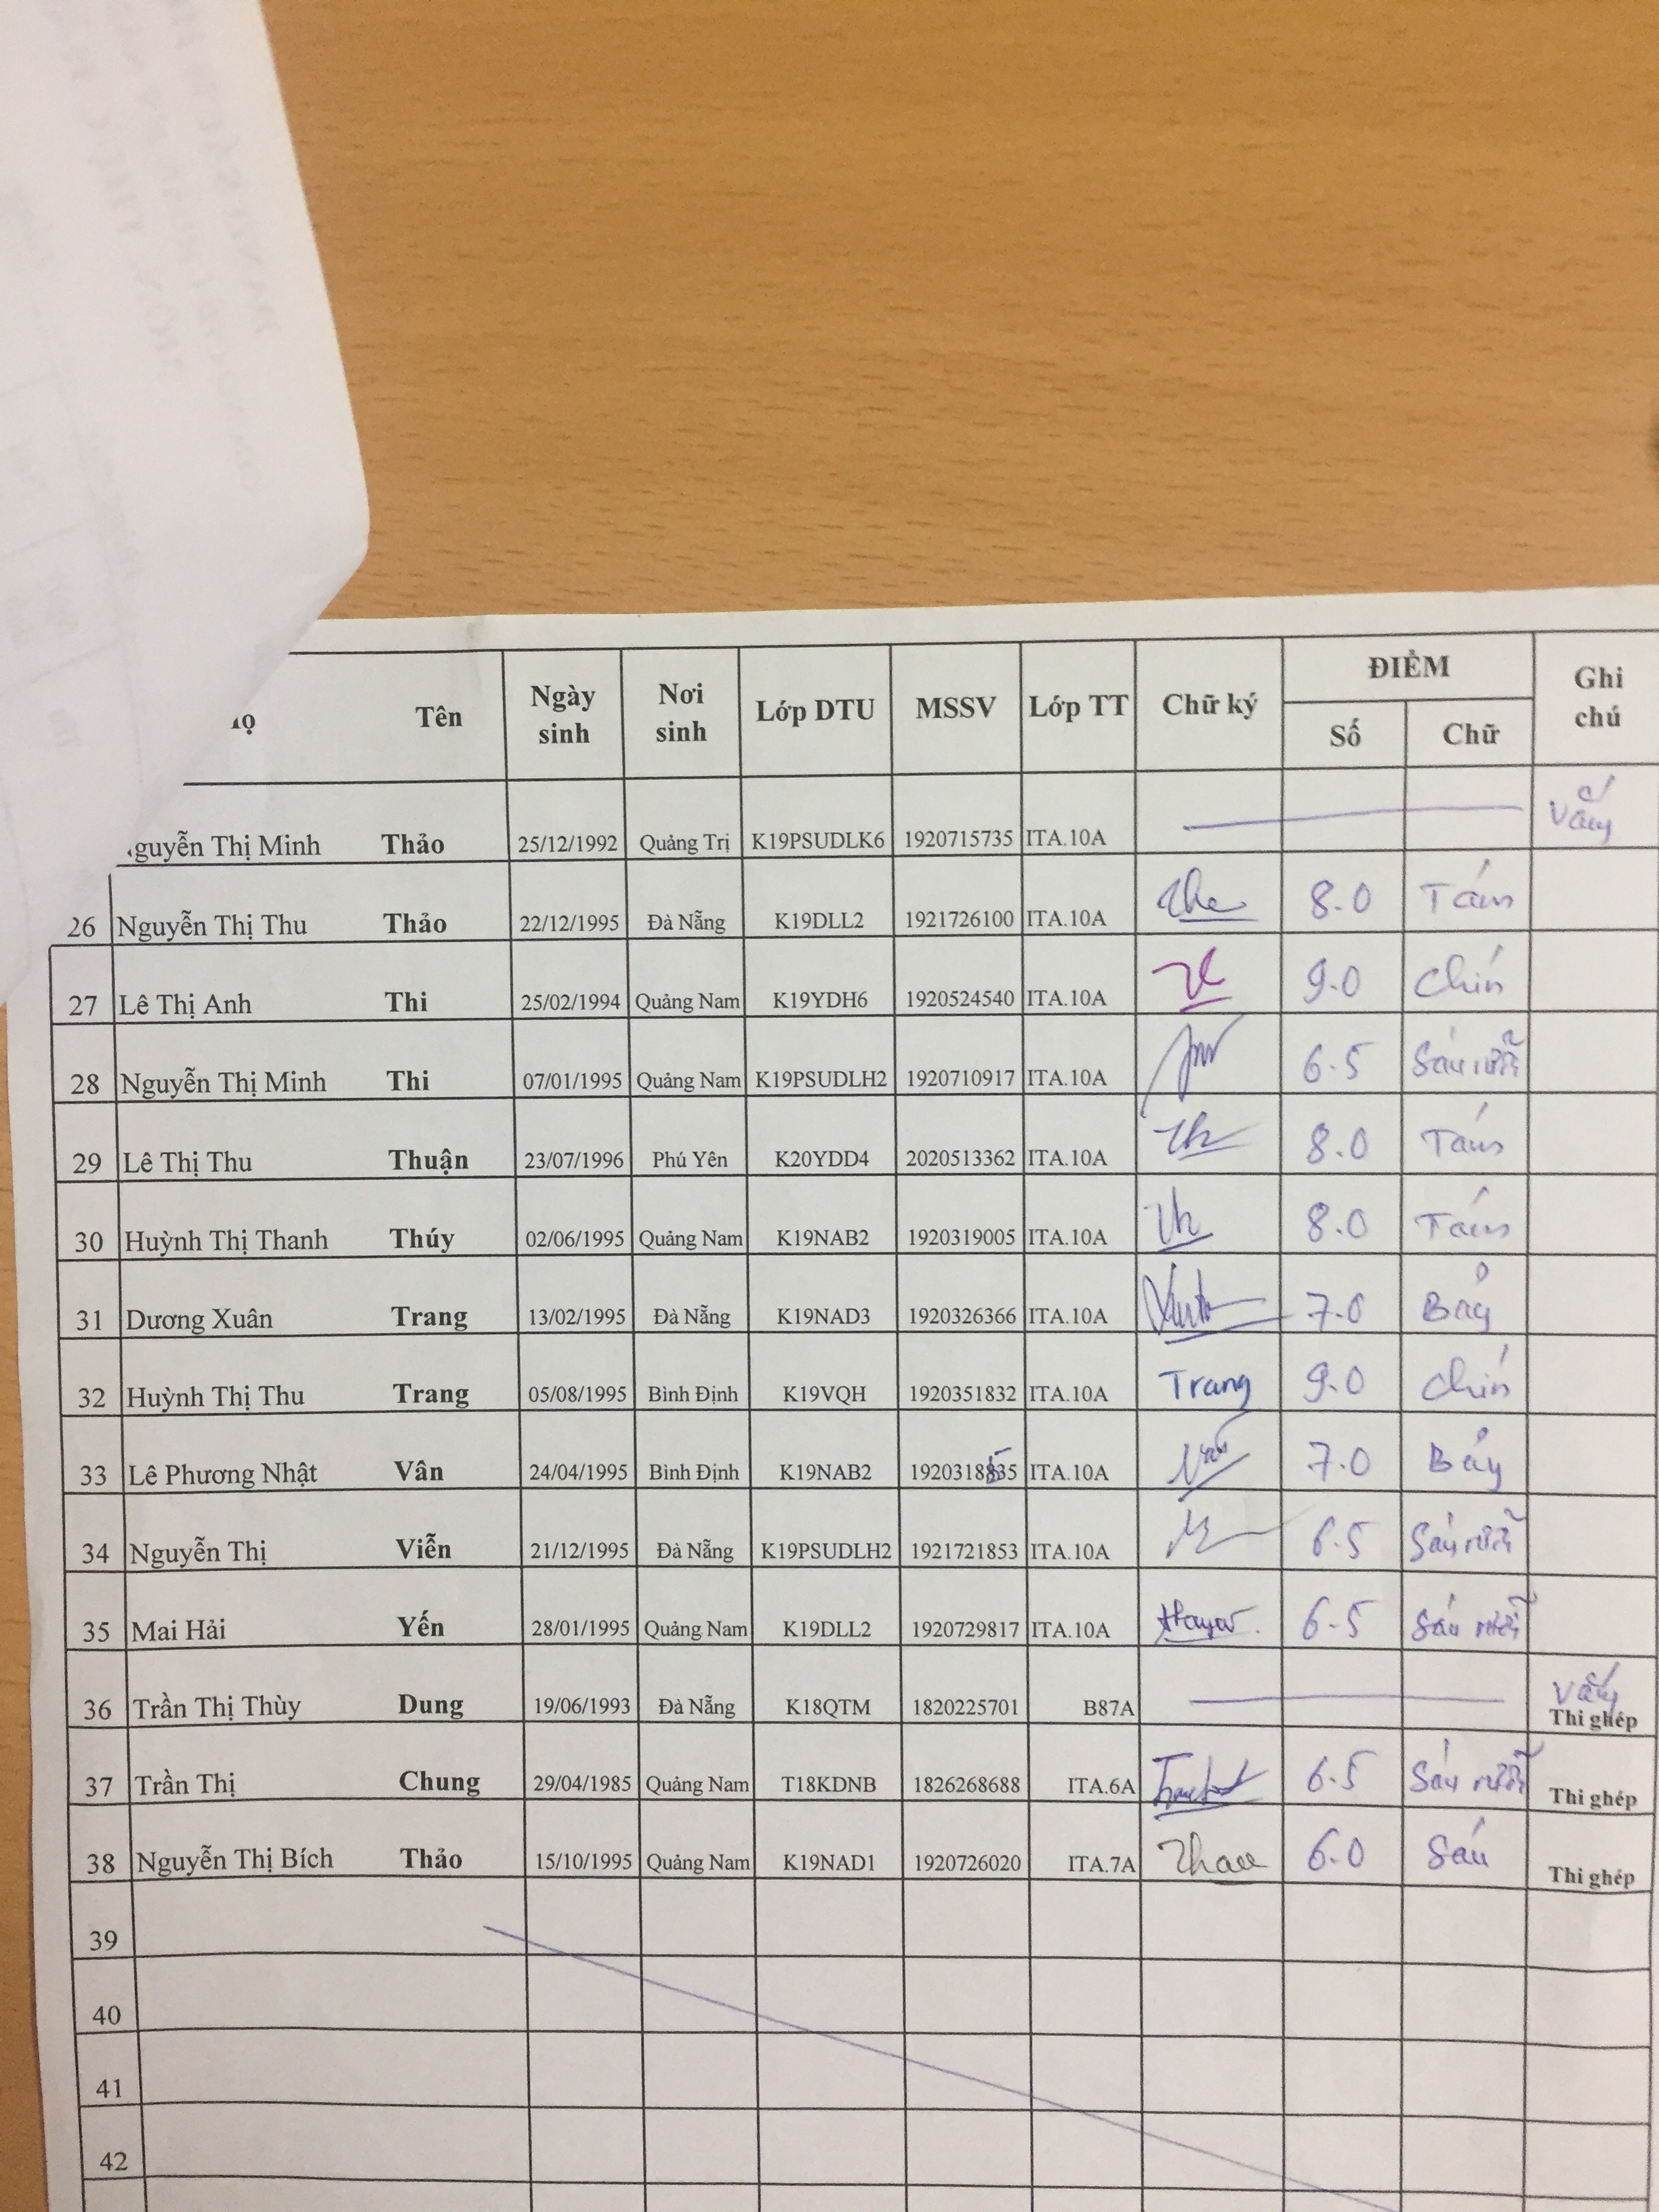 Tên Ngày sinh Nơi sinh Lớp DTU MSSV Lớp TT Chữ ký ĐIỂM Số Chữ Ghi chú
Thị Minh Thảo 25/12/1992 Quảng Trị K19PSUDLK6 1920715735 ITA.10A Vắng
26 Nguyễn Thị Thu Thảo 22/12/1995 Đà Nẵng K19DLL2 1921726100 ITA.10A 8.0 Tám
27 Lê Thị Anh Thi 25/02/1994 Quảng Nam K19YDH6 1920524540 ITA.10A 9.0 Chín
28 Nguyễn Thị Minh Thi 07/01/1995 Quảng Nam K19PSUDLH2 1920710917 ITA.10A 6.5 Sáu rưỡi
29 Lê Thị Thu Thuận 23/07/1996 Phú Yên K20YDD4 2020513362 ITA.10A 8.0 Tám
30 Huỳnh Thị Thanh Thúy 02/06/1995 Quảng Nam K19NAB2 1920319005 ITA.10A 8.0 Tám
31 Dương Xuân Trang 13/02/1995 Đà Nẵng K19NAD3 1920326366 ITA.10A 7.0 Bảy
32 Huỳnh Thị Thu Trang 05/08/1995 Bình Định K19VQH 1920351832 ITA.10A Trang 9.0 Chín
33 Lê Phương Nhật Vân 24/04/1995 Bình Định K19NAB2 ITA.10A 7.0 Bảy
34 Nguyễn Thị Viễn 21/12/1995 Đà Nẵng K19PSUDLH2 1921721853 ITA.10A 6.5 Sáu rưỡi
35 Mai Hải Yến 28/01/1995 Quảng Nam K19DLL2 1920729817 ITA.10A 6.5 Sáu rưỡi
36 Trần Thị Thùy Dung 19/06/1993 Đà Nẵng K18QTM 1820225701 B87A Vắng Thi ghép
37 Trần Thị Chung 29/04/1985 Quảng Nam T18KDNB 1826268688 ITA.6A 6.5 Sáu rưỡi Thi ghép
38 Nguyễn Thị Bích Thảo 15/10/1995 Quảng Nam K19NAD1 1920726020 ITA.7A 6.0 Sáu Thi ghép
39
40
41
42